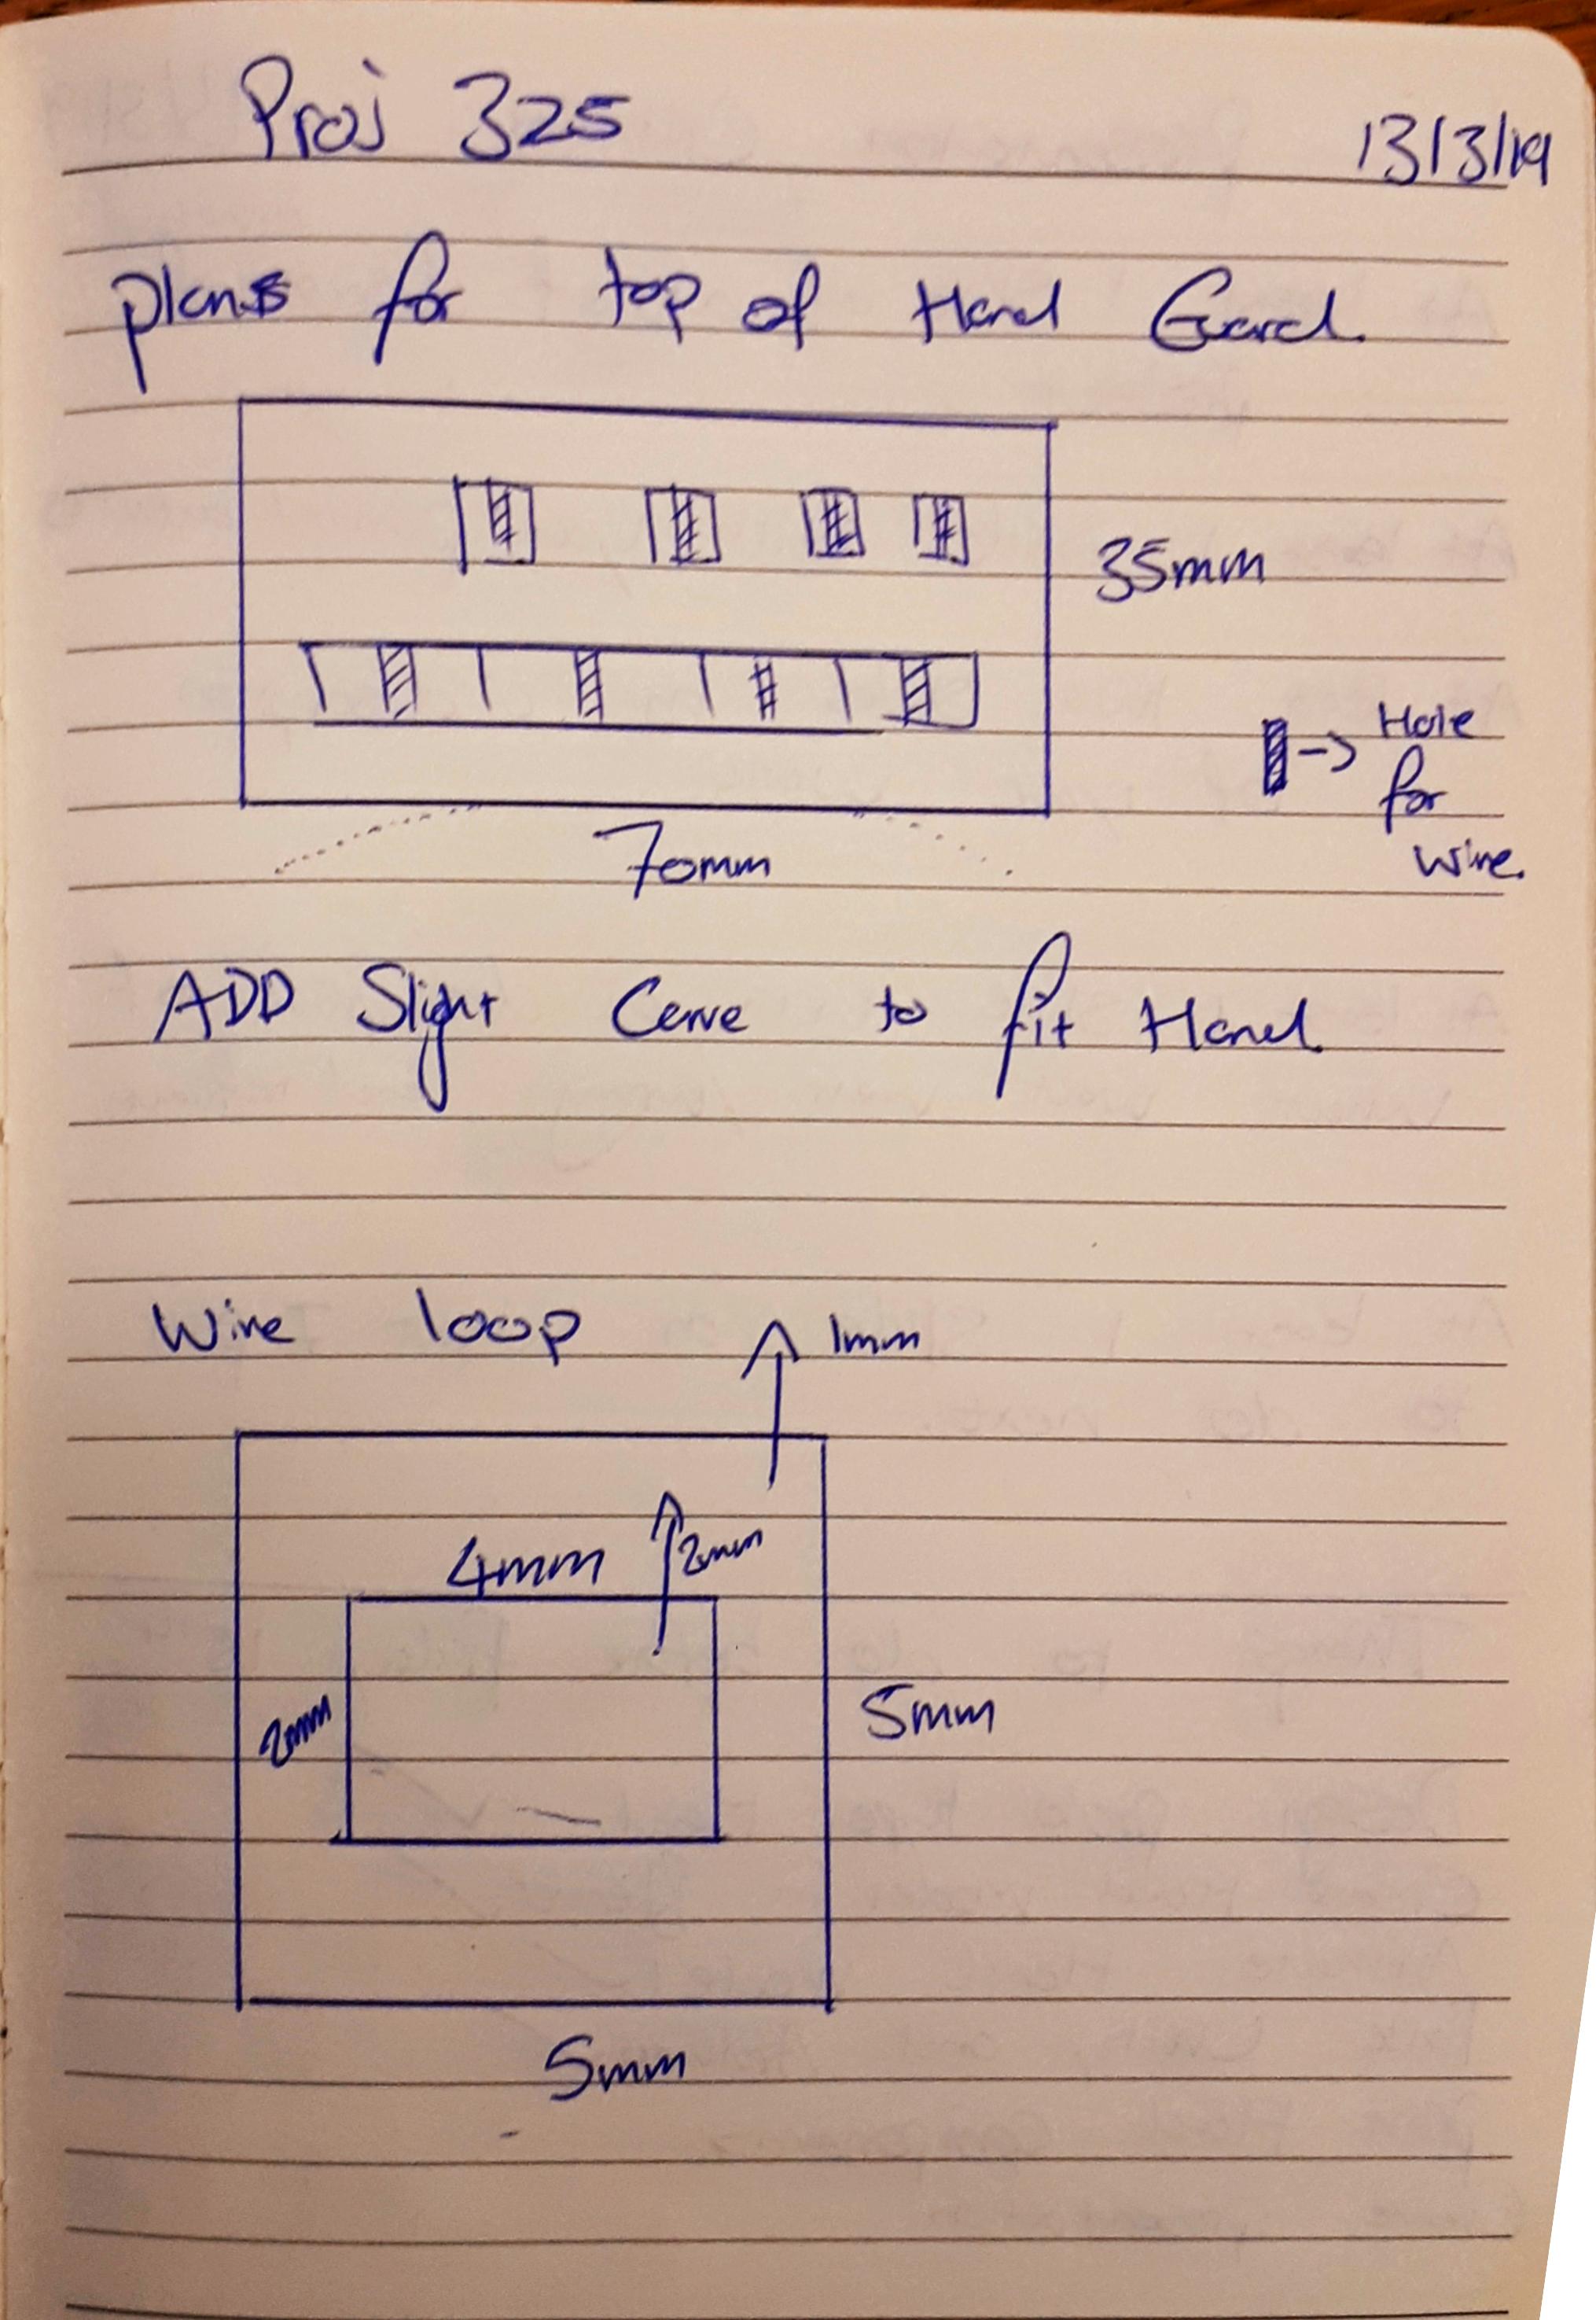 Proj 325
13/3/19
plans for top of Hand Guard.
35mm
Hole
for
wire.
70mm
ADD Slight Curve to fit Hand.
Wire loop
1mm
4mm
2mm
2mm
5mm
5mm